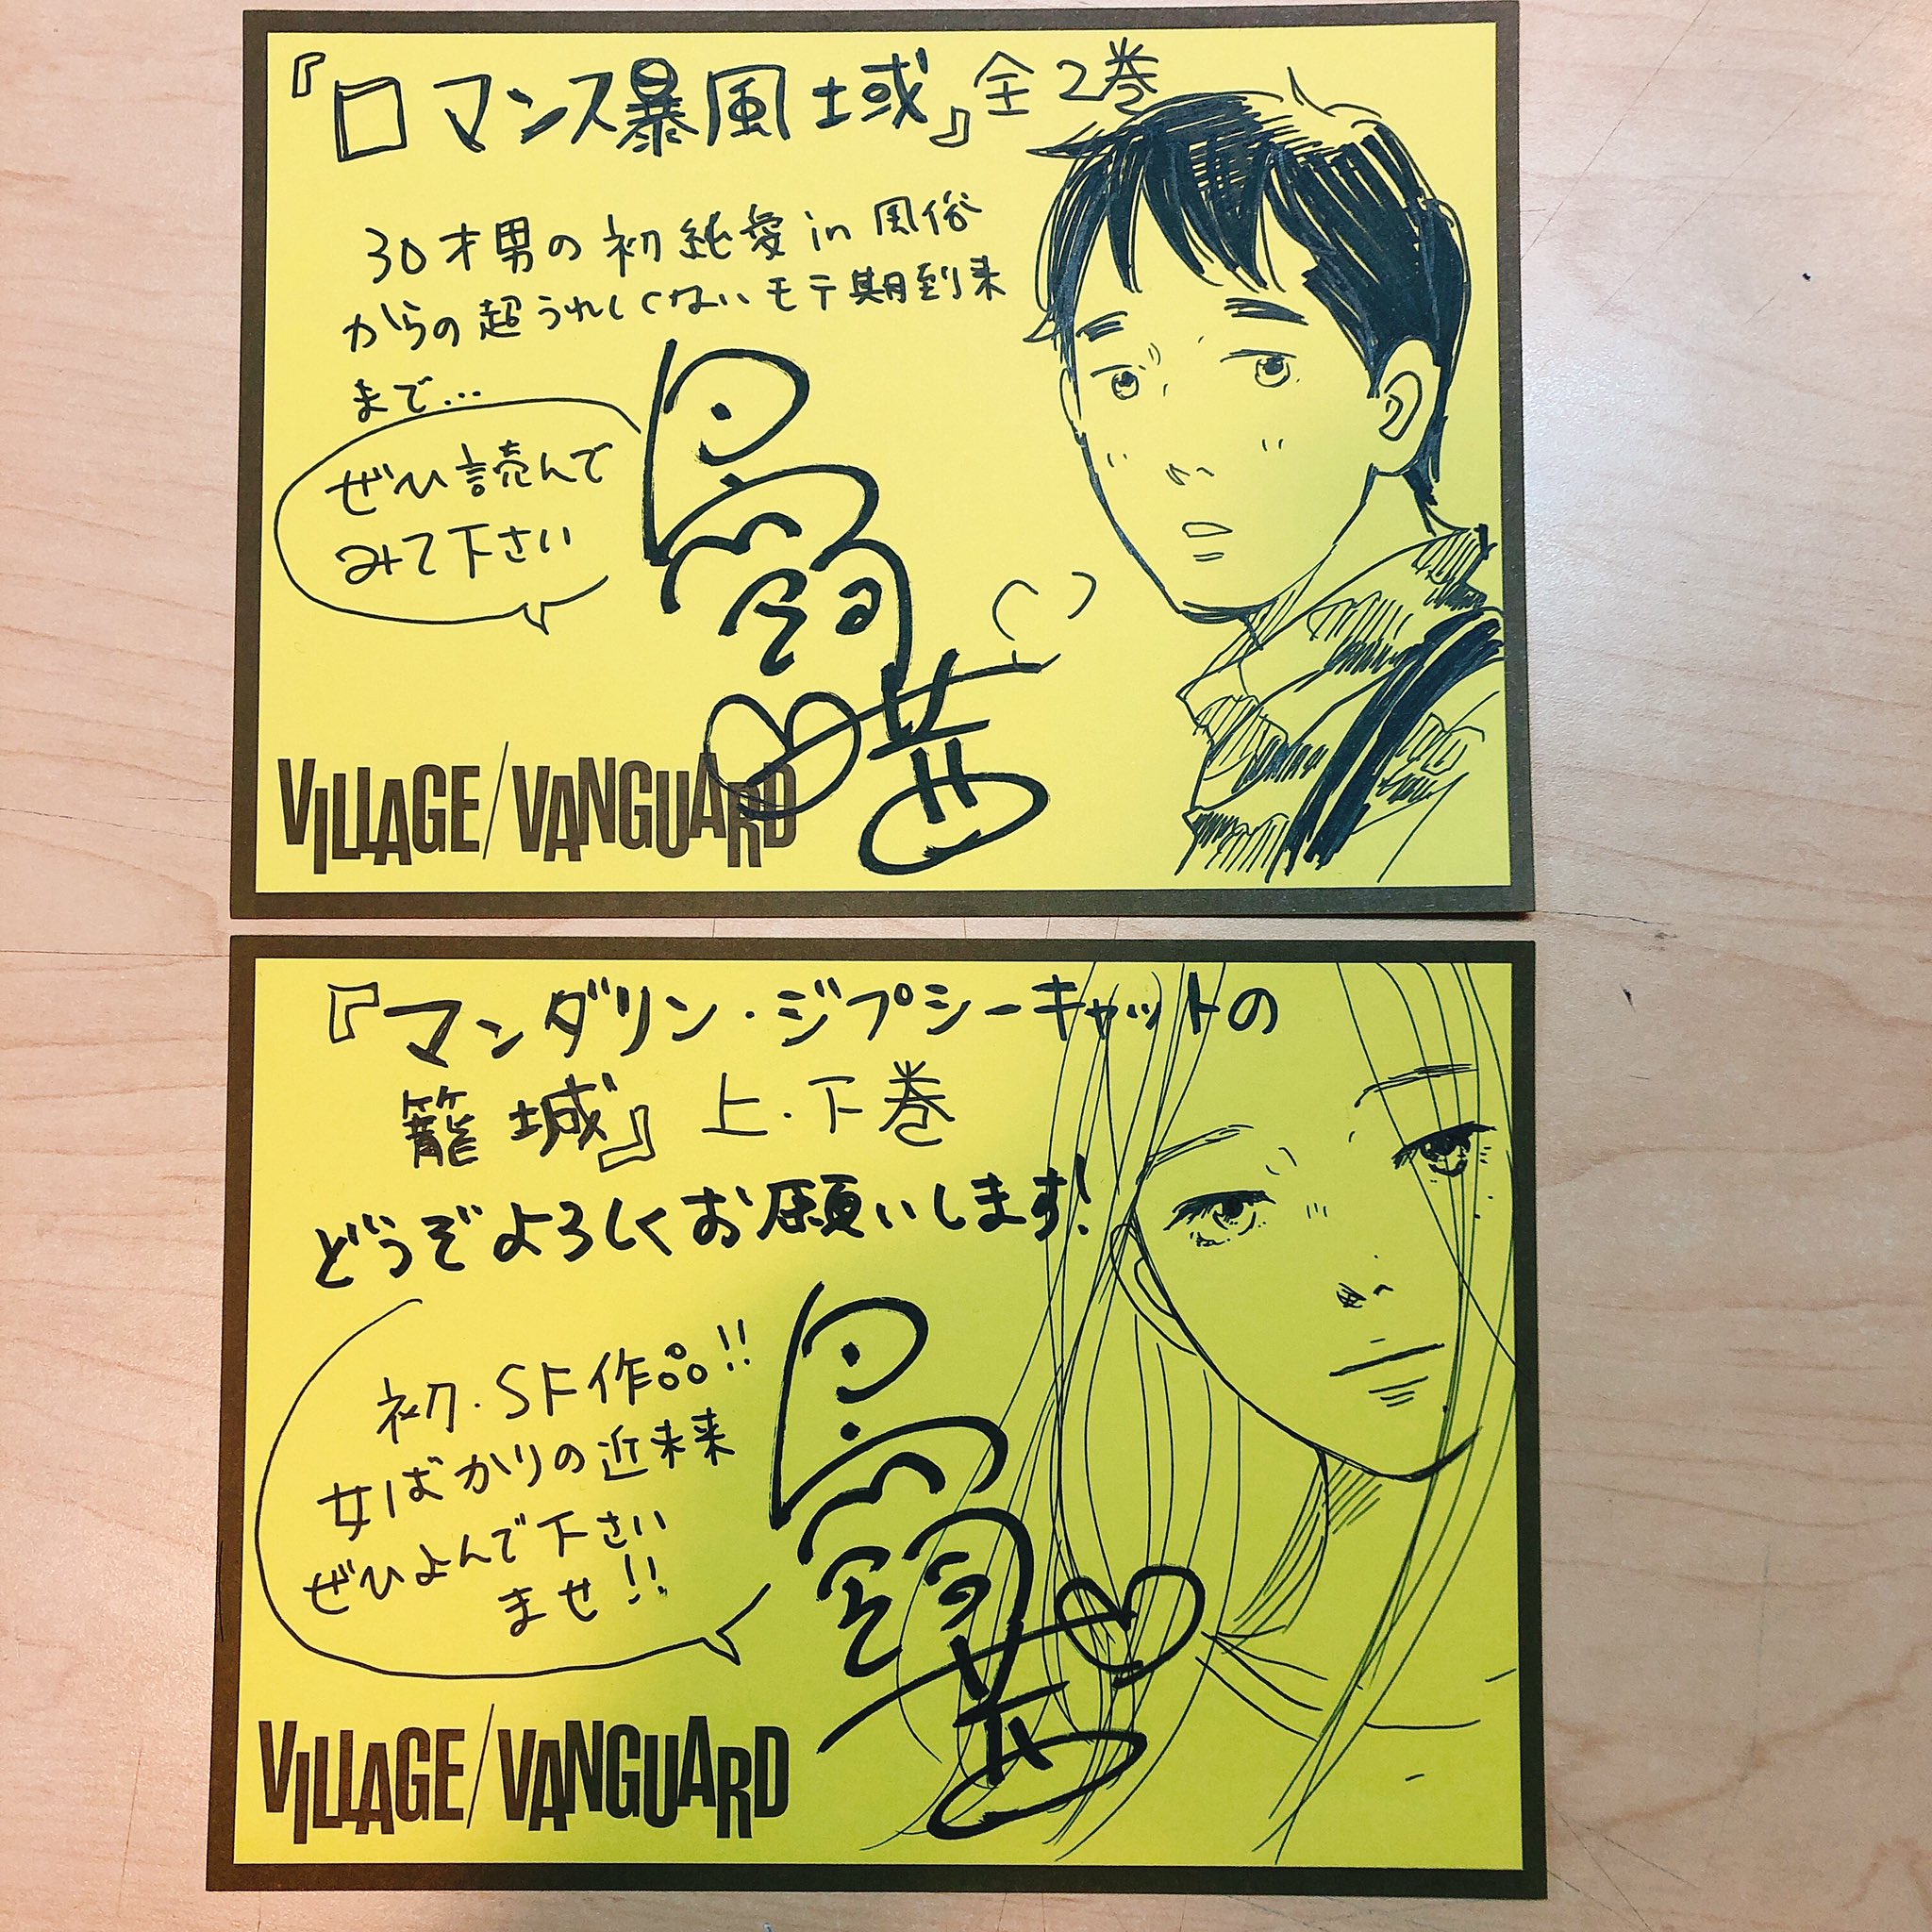 『ロマンス暴風域』全2巻
30才男の初純愛in風俗
からの超うれしくないモテ期到来
まで…
ぜひ読んで
みて下さい
鳥飼
茜
VILLAGE/VANGUARD
『マンダリン・ジプシーキャットの
籠城』上・下巻
どうぞよろしくお願いします!
初・SF作品!!
女ばかりの近未来
ぜひよんで下さい
ませ!!
鳥飼
茜
VILLAGE/VANGUARD